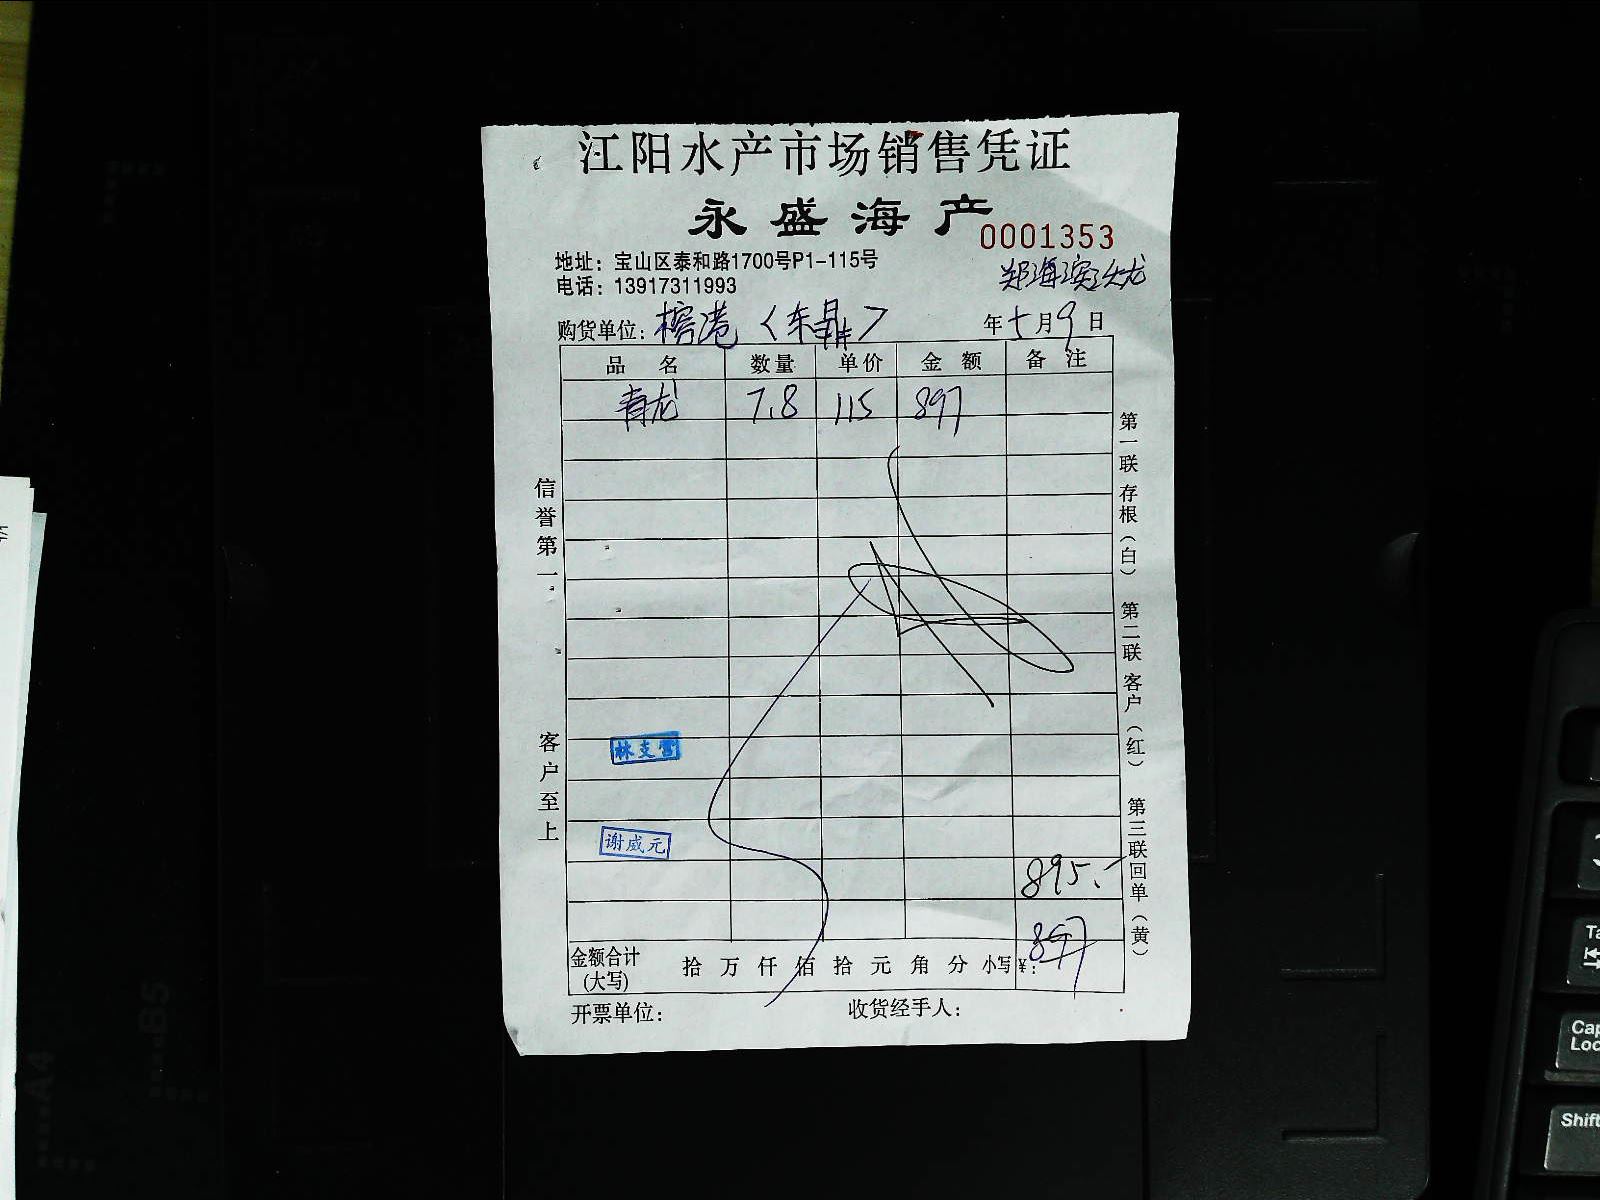 江阳水产市场销售凭证
永盛海产
0001353
地址：宝山区泰和路1700号P1-115号
电话：13917311993
购货单位：榕港〈东鼎〉 年 5 月 9 日
品名 数量 单价 金额 备注
青龙 7.8 115 897
信誉第一
客户至上
第一联 存根（白） 第二联 客户（红） 第三联 回单（黄）
林支营
谢威元
895.-
金额合计(大写) 拾 万 仟 佰 拾 元 角 分 小写¥：897
开票单位： 收货经手人：
Ta
Cap
Loc
Shift
A4
B5